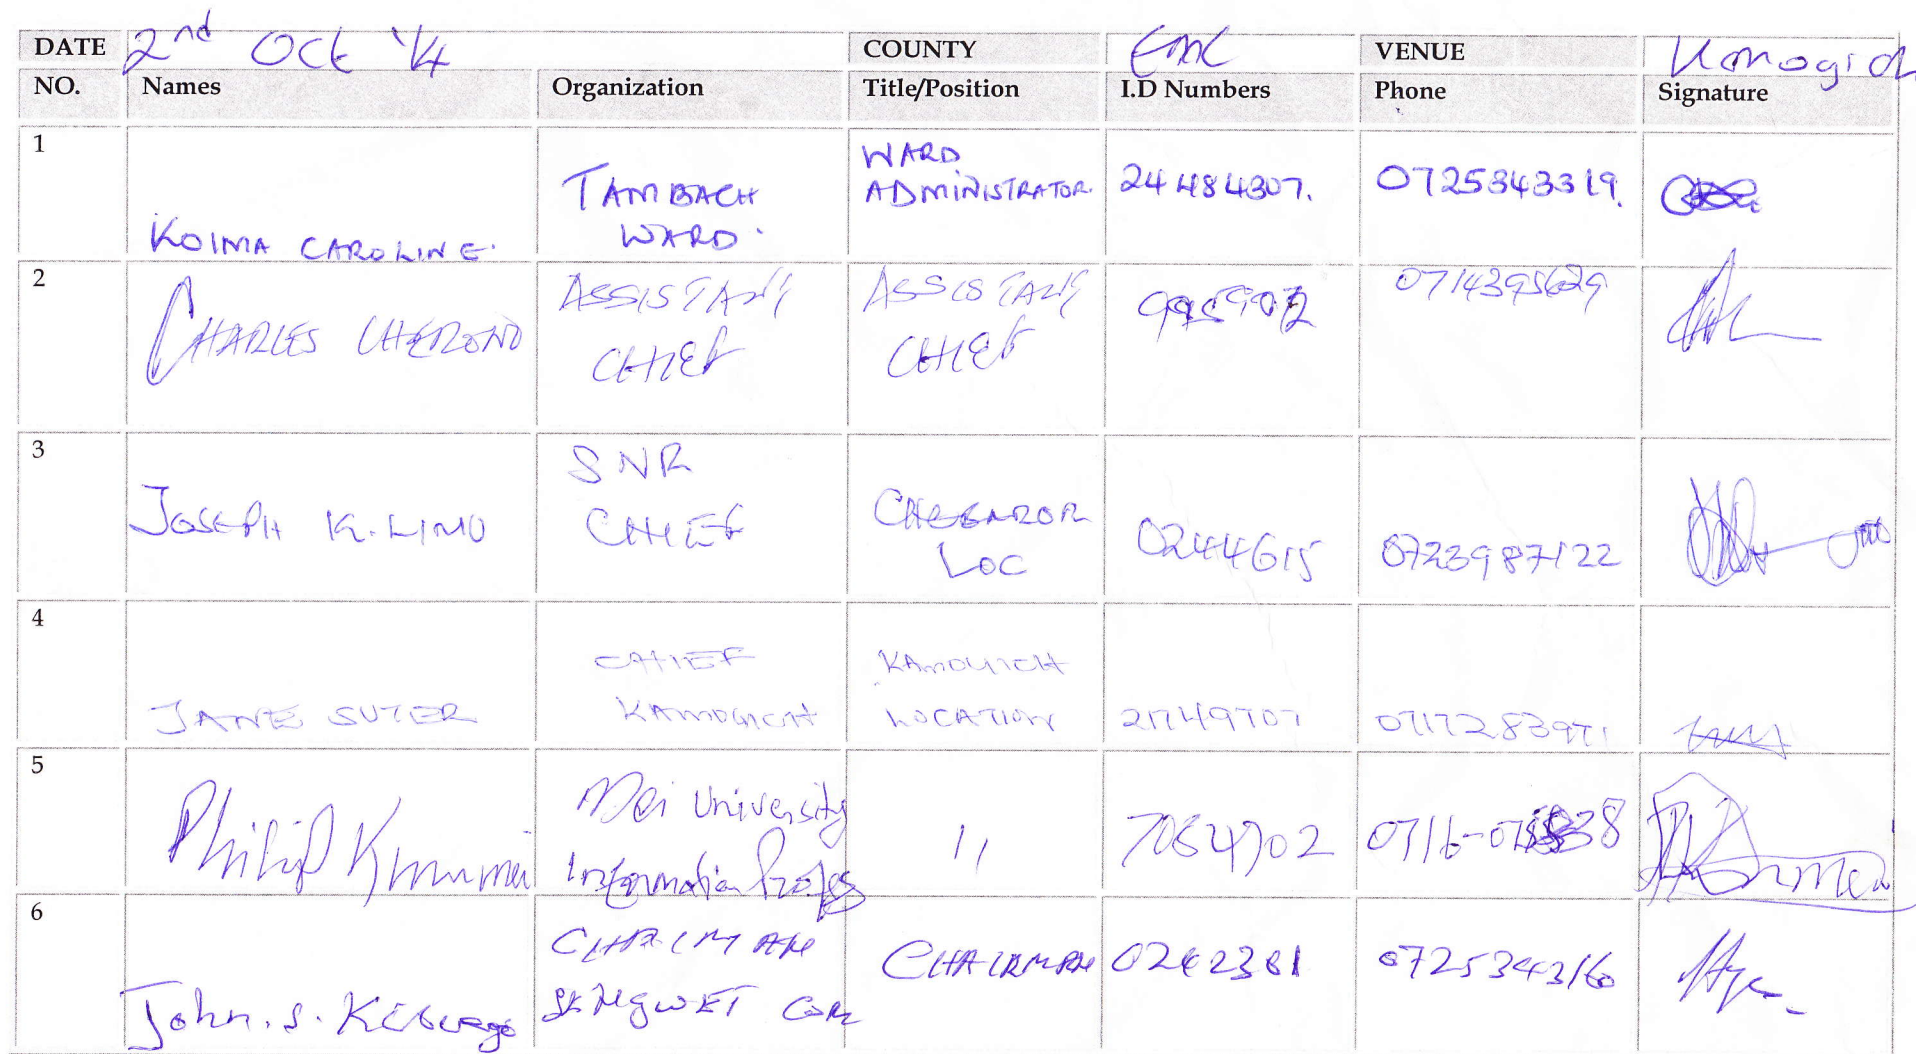 DATE 2nd Oct '14 COUNTY EMC VENUE Kamogich
NO. Names Organization Title/Position I.D Numbers Phone Signature
1 KOIMA CAROLINE. TAMBACH WARD. WARD ADMINISTRATOR. 24484307. 0725343319.
2 CHARLES CHERONO ASSISTANT CHIEF ASSISTANT CHIEF 0714395629
3 JOSEPH K. LIMO SNR CHIEF LOC 0244615 0723987122
4 JANE SUTER CHIEF KAMOGICH KAMOGICH LOCATION 21749707 0717283971
5 Philip Moi University Information Profess 11 7064902 0716-
6 John. S. CHAIRMAN CHAIRMAN 0242361 0725343160